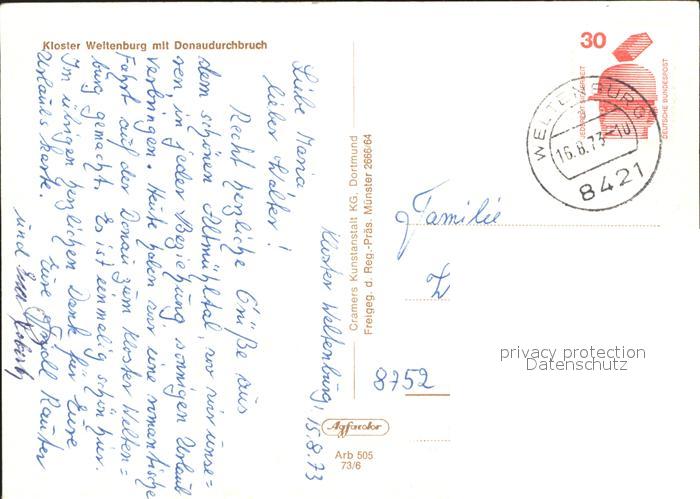 Kloster Weltenburg mit Donaudurchbruch
Kloster Weltenburg, 15.8.73
Liebe Maria
lieber Walter!
Recht herzliche Grüße aus
dem schönen Altmühltal, wo wir unse=
ren in jeder Beziehung sonnigen Urlaub
verbringen. Heute haben wir eine romantische
Fahrt auf der Donau zum Kloster Welten=
burg gemacht. Es ist einmalig schön hier.
Im übrigen herzlichen Dank für Eure
Urlaubskarte.
Eure
und
Cramers Kunstanstalt KG. Dortmund
Freigeg. d. Reg.-Präs. Münster 2666/64
Agfacolor
Arb 505
73/6
30
JEDERZEIT SICHERHEIT
DEUTSCHE BUNDESPOST
WELTENBURG
16.8.73-10
8421
Familie
8752
privacy protection
Datenschutz